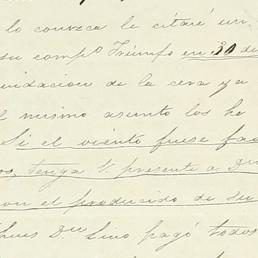 lo convzca le citaré un
su comp.o Triunfo en 30 de
uidacion de la cera ya
l mismo asunto los he
Si el viento fuese fa
os, tenga V. presente a Dn
on el producido de su
hues Dn Lino pagó todos